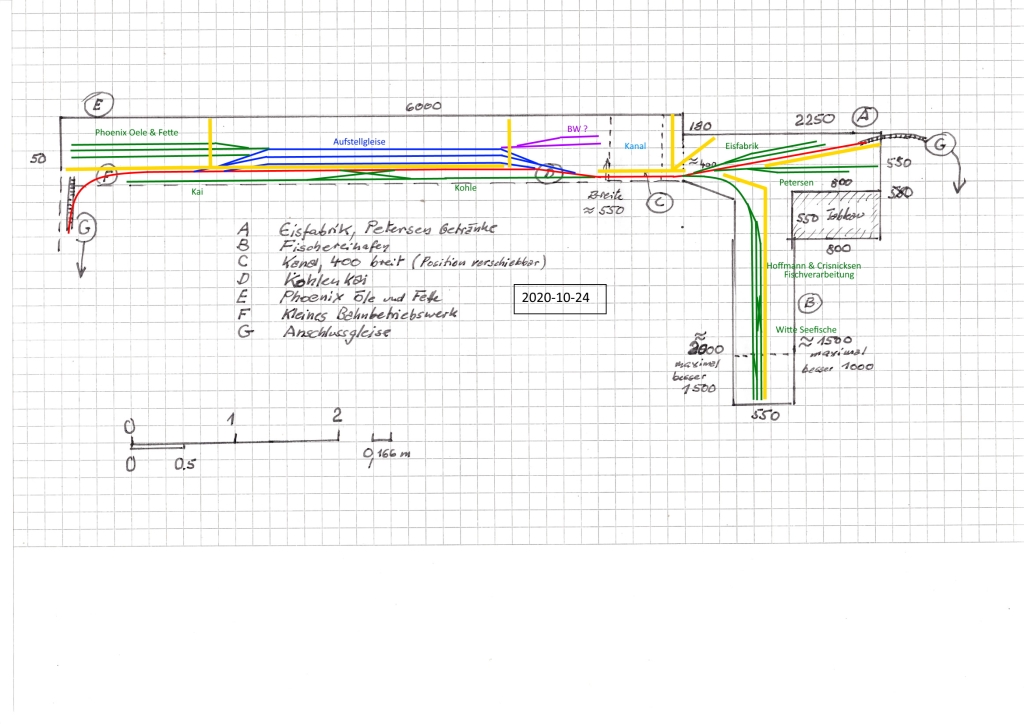 E
6000
A
2250
180
Phoenix Oele & Fette
BW ?
Aufstellgleise
Kanal
Eisfabrik
G
50
≈ 400
550
F
D
Kai
Kohle
Petersen
800
Breite
≈ 550
C
550
G
A Eisfabrik, Petersen Getränke
B Fischereihafen
C Kanal, 400 breit (Position verschiebbar)
D Kohlenkai
E Phoenix Öle und Fette
F Kleines Bahnbetriebswerk
G Anschlussgleise
800
Hoffmann & Crisnicksen
Fischverarbeitung
2020-10-24
B
Witte Seefische
≈
2000
maximal
besser
1500
≈ 1500
maximal
besser 1000
550
0 1 2
0 0.5
0,166 m